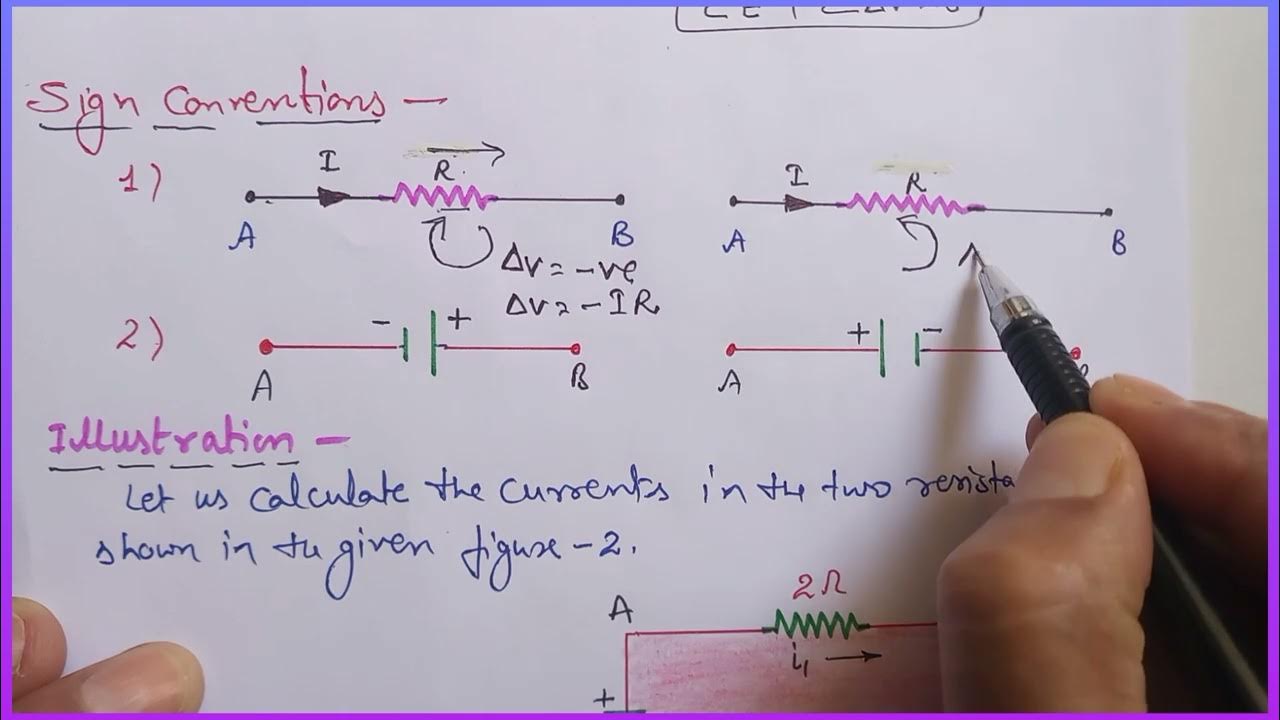 Sign Conventions -
1)
I R. A B
Δv = -ve
Δv = - IR
I R A B
2)
- + A B
+ - A
Illustration -
Let us calculate the currents in the two
shown in the given figure-2.
A 2Ω
i₁
+